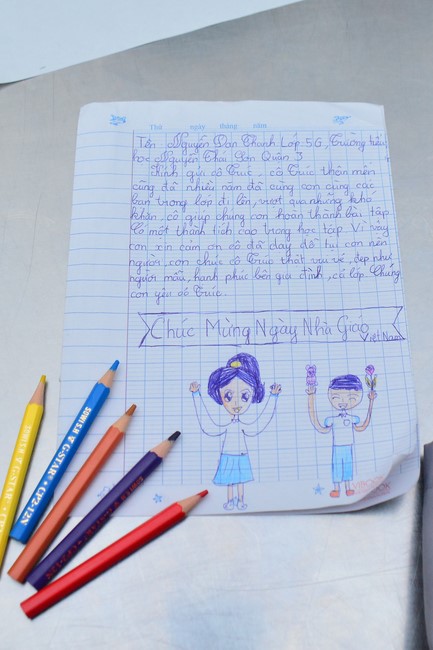 Thứ ngày tháng năm
Tên Nguyễn Đan Thanh Lớp 5G, Trường tiểu
học Nguyễn Thái Sơn Quận 3
Kính gửi cô Trúc, cô Trúc thân mến
cũng đã nhiều năm đã cùng con cùng các
bạn trong lớp đi lên, vượt qua những khó
khăn, cô giúp chúng con hoàn thành bài tập
Có một thành tích cao trong học tập. Vì vậy
con xin cảm ơn cô đã dạy dỗ tụi con nên
người, con chúc cô Trúc thật vui vẻ, đẹp như
người mẫu, hạnh phúc bên gia đình, cả lớp. Chúng
con yêu cô Trúc.
Chúc Mừng Ngày Nhà Giáo
Việt Nam
G-STAR CP2-12N